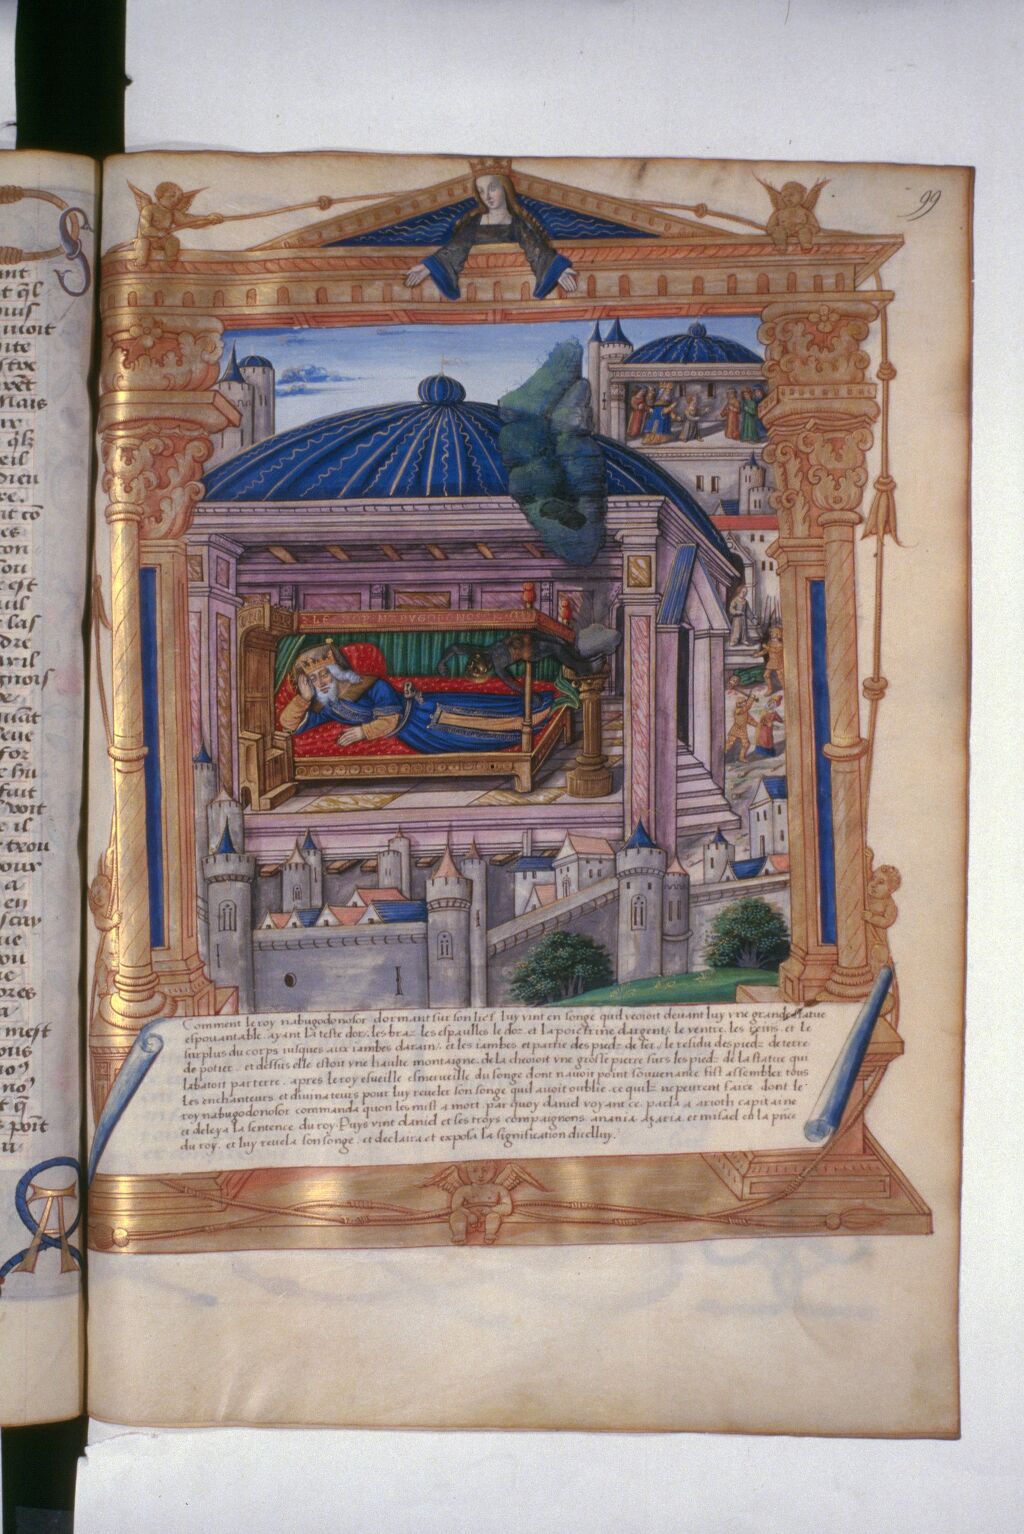 99
LE ROY NABUGODONOSOR
Comment le roy nabugodonosor dormant sur son lict luy vint en songe quil veoioit devant luy vne grande statue
espouantable ayant la teste dor, les braz les espaulles le doz et la poictrine dargent, le ventre, les reins, et le
surplus du corps iusques aux iambes darain, et les iambes et partie des piedz de fer, le residu des piedz de terre
de potier, et dessus elle estoit vne haulte montaigne de la cheoioit vne grosse pierre surs les piedz de la statue qui
labatoit par terre, apres le roy esueille esmerueille du songe dont nauoit point souvenance fist assembler tous
les enchanteurs et diuinateurs pour luy reveler son songe quil auoit oublie, ce quilz ne peurent faire dont le
roy nabugodonosor commanda quon les mist a mort, par quoy daniel voyant ce, parla a arioth capitaine
et deleya la sentence du roy. Puys vint daniel et ses troys compaignons anania azaria et misael en la pnce
du roy, et luy reuela son songe, et declaira et exposa la signification dicelluy.
ant
t q̄l
nuoit
Mais
q̄lz
eil
dieu
re.
nt cō
es
con
e est
uil
las
dre
auil
gnors
for
fait
voit
e il
trou
pour
a
en
scay
ou
ores
a
mest
ous
noꝰ
t q̄
poit